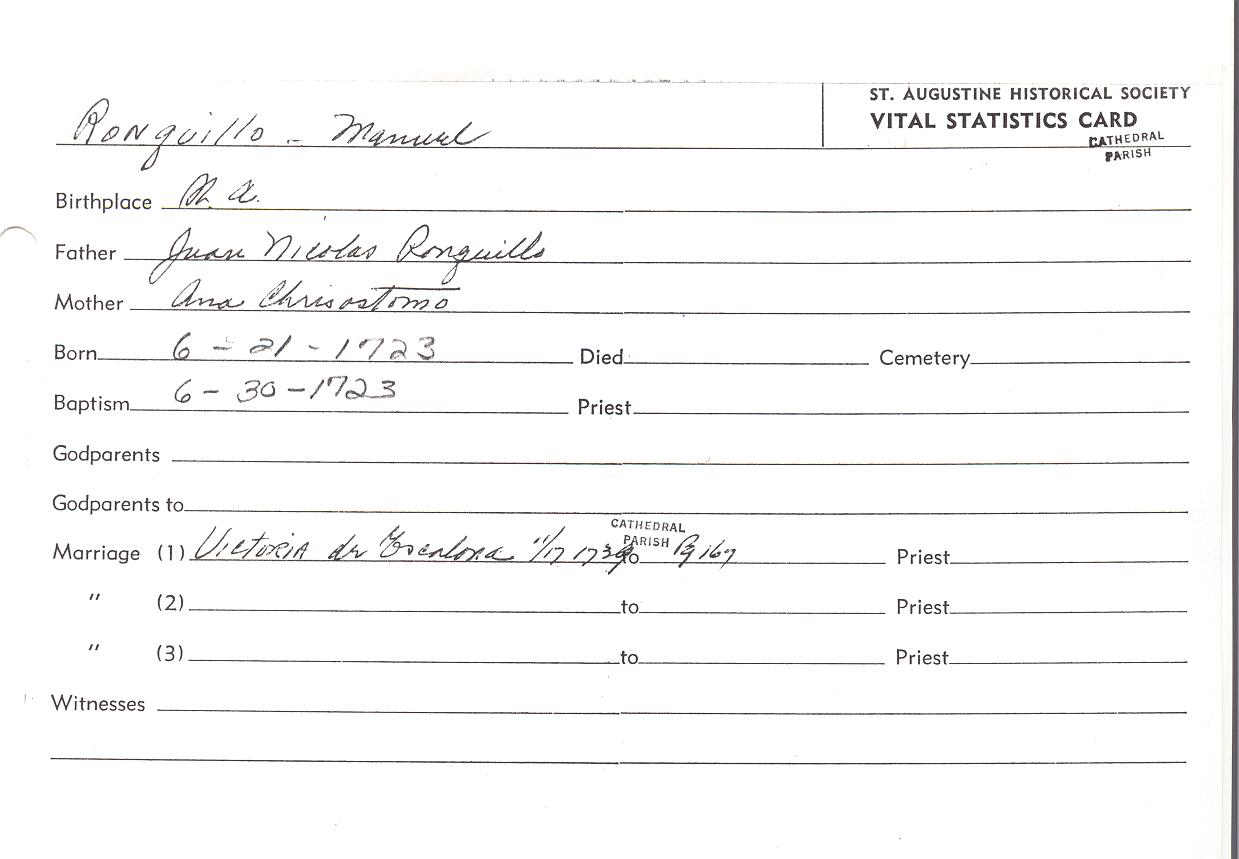 ST. AUGUSTINE HISTORICAL SOCIETY
VITAL STATISTICS CARD
CATHEDRAL
PARISH
Ronquillo - Manuel
Birthplace
Father Juan Nicolas Ronquillo
Mother Ana Chrisostomo
Born 6 - 21 - 1723 Died Cemetery
Baptism 6 - 30 - 1723 Priest
Godparents
Godparents to
CATHEDRAL
PARISH
Marriage (1) Victoria de Escalona 11/17 to Pg 167 Priest
" (2) to Priest
" (3) to Priest
Witnesses